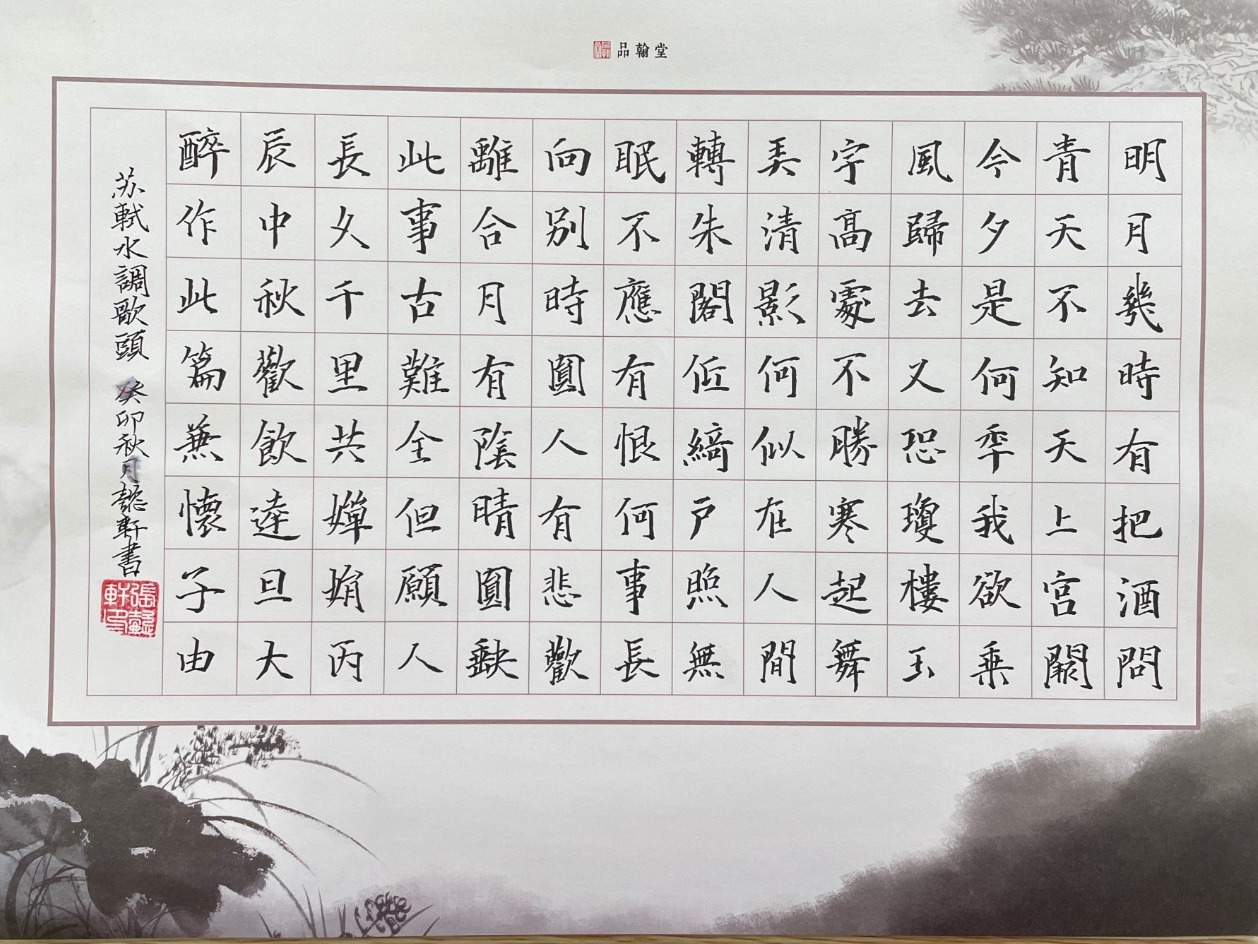 品翰堂
明月幾時有把酒問
青天不知天上宮闕
今夕是何秊我欲乗
風歸去又恐瓊樓玉
宇高處不勝寒起舞
弄清影何似在人間
轉朱閣低綺戶照無
眠不應有恨何事長
向別時圓人有悲歡
離合月有陰晴圓缺
此事古難全但願人
長久千里共嬋娟丙
辰中秋歡飲達旦大
醉作此篇兼懷子由
苏軾水調歌頭 癸卯秋月懿軒書
張懿軒印